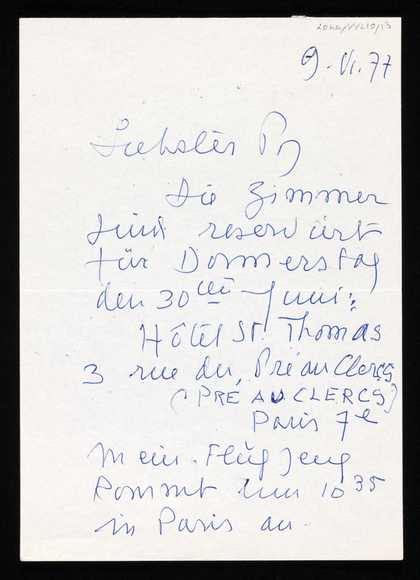 9. VI. 77
Liebster
Die Zimmer
sind reserviert
für Donnerstag
den 30ten Juni:
Hôtel St. Thomas
3 rue du Pré au Clercs
(PRÉ AU CLERCS)
Paris 7e
Mein Flugzeug
kommt um 10 35
in Paris an.